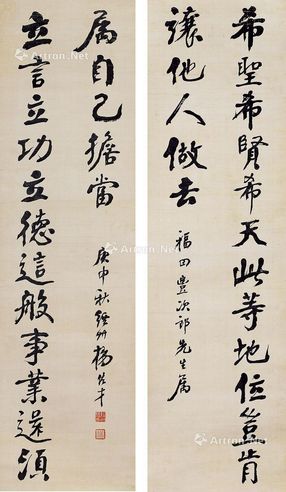 希聖希賢希天此等地位豈肯
讓他人做去
福田豐次郎先生属
立言立功立德這般事業還須
属自己擔當
庚申秋
Artron.Net
Artron.Net